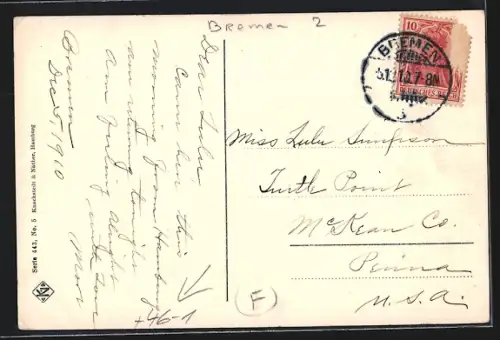 Bremen 2
Bremen
Dec 5 - 1910
Dear Lulu
Came here this
morning from Hamburg
am returning tonight
am feeling alright
with love
+46-1
Serie 443, No. 5 Knackstedt & Näther, Hamburg
10
BREMEN
5.12.10.7-8N
Miss Lulu Simpson
Turtle Point
McKean Co.
Penna
U.S.A.
F